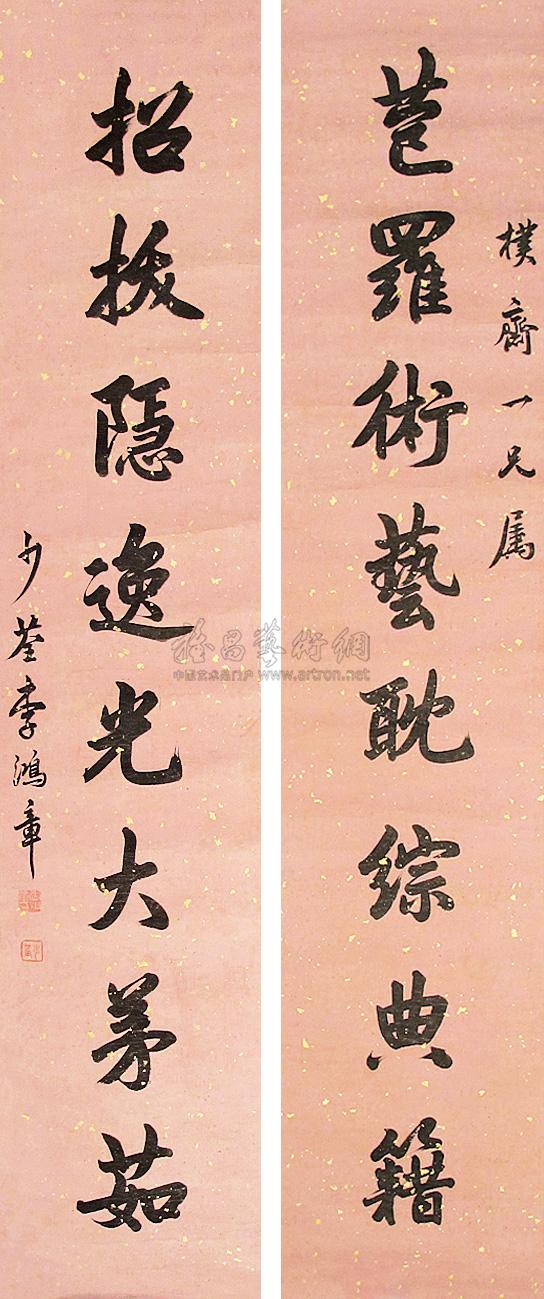 樸齋一兄属
苞羅術藝耽综典籍
招拔隱逸光大茅茹
少荃李鴻章
雅昌藝術網
中国艺术品门户 www.artron.net